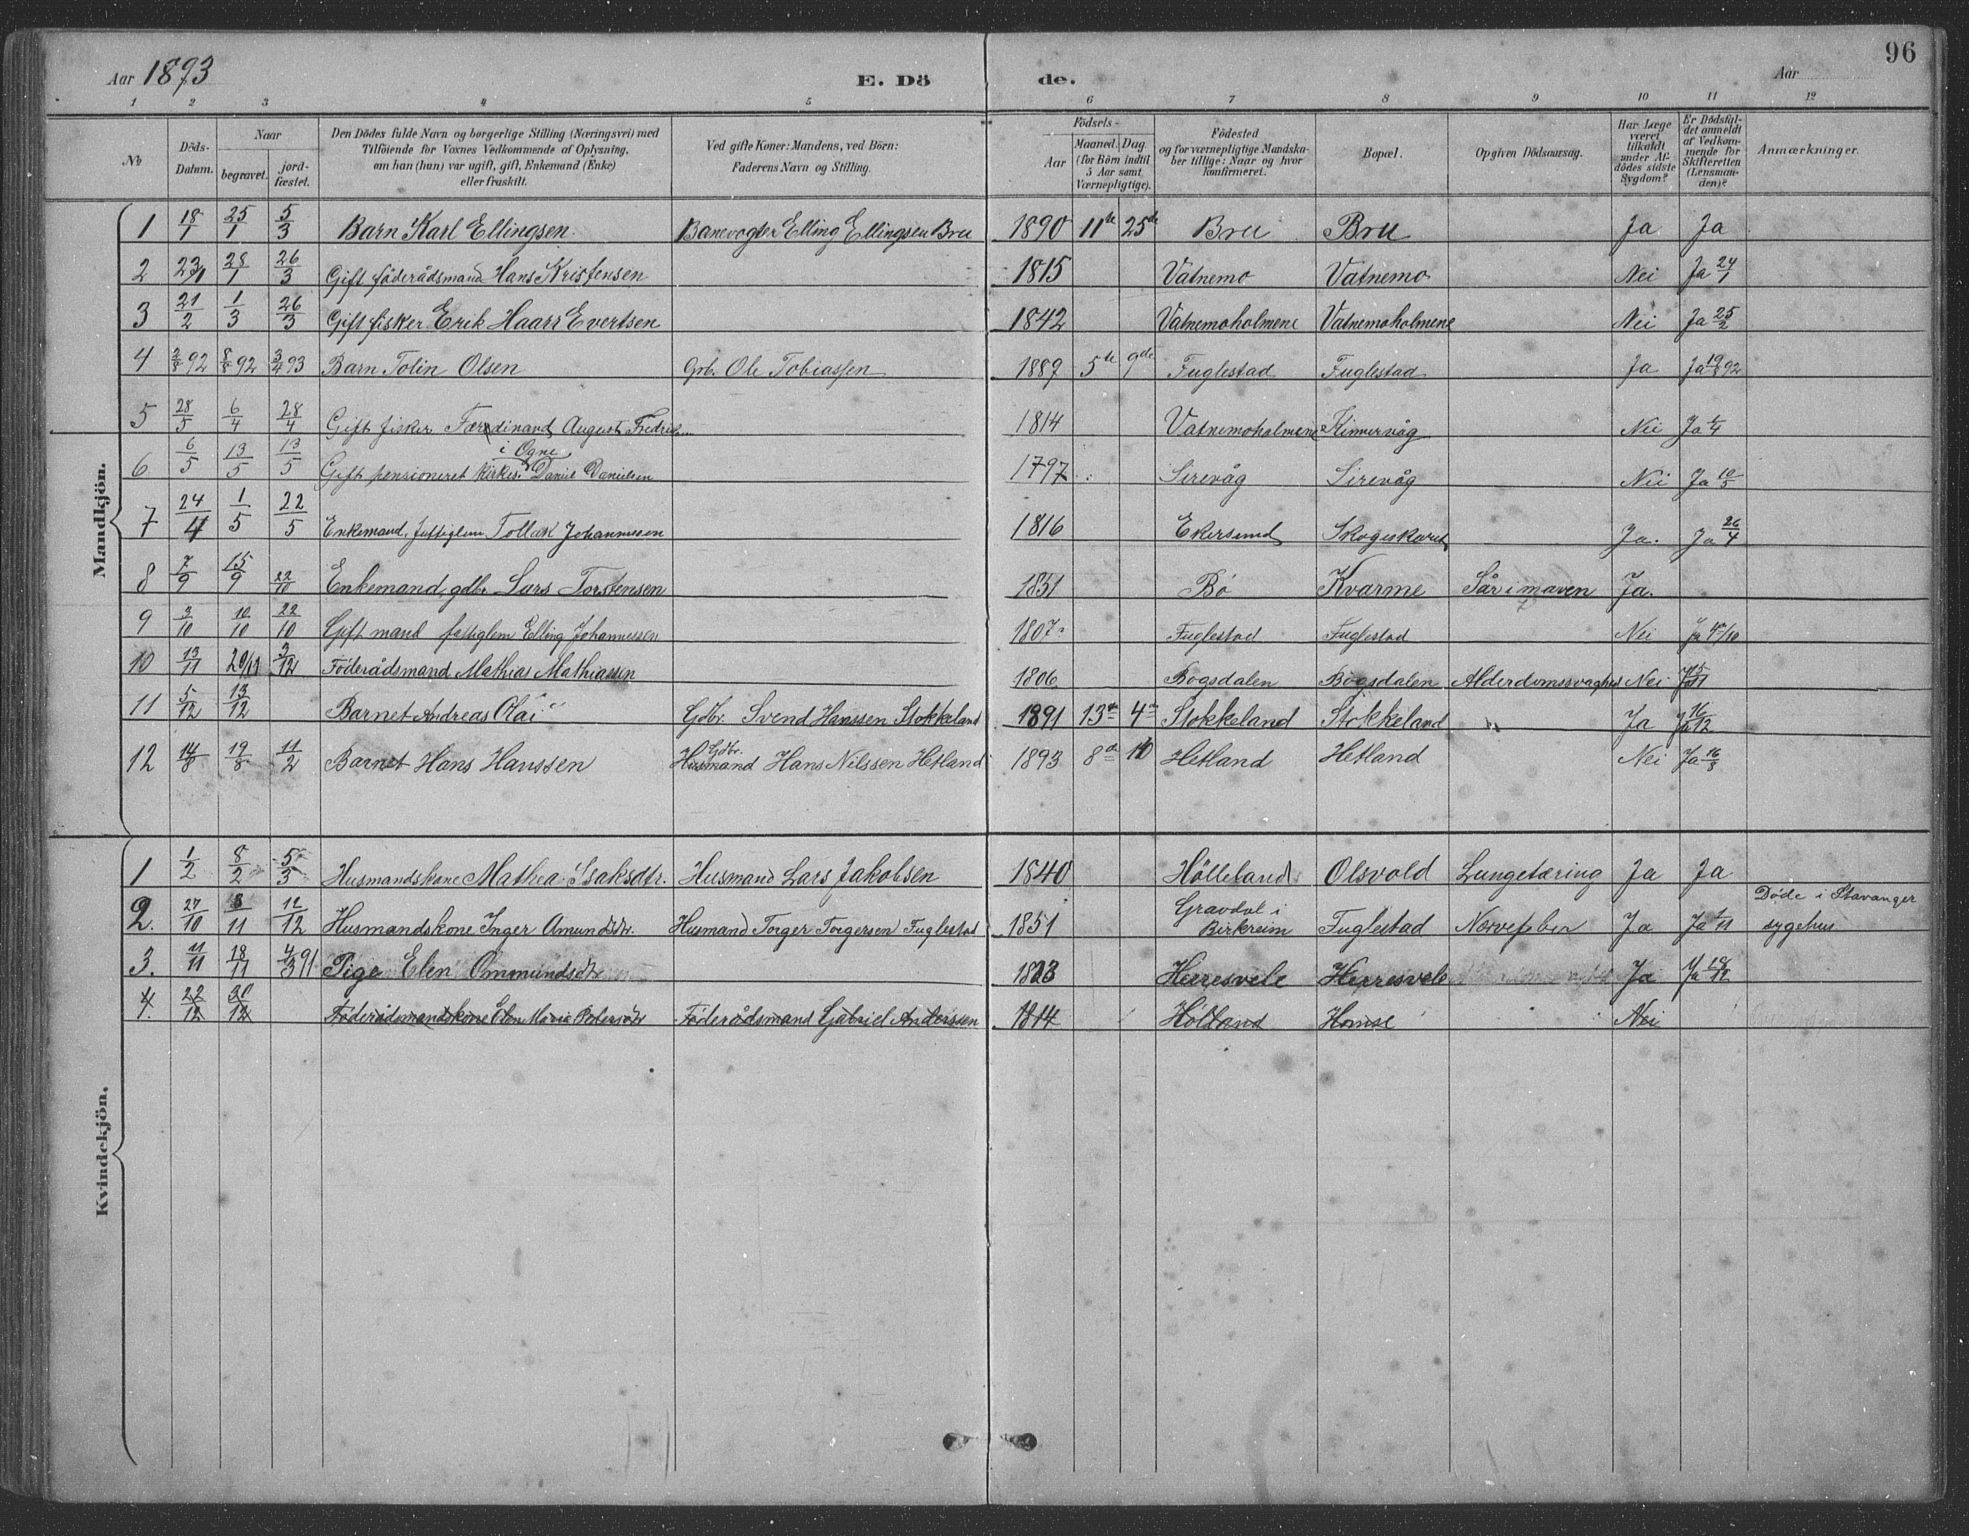 96
Aar 1893 E. Dö de. Aar
1 2 3 4 5 6 7 8 9 10 11 12
No
Döds-Datum.
Naar
begravet.
jord-fæstet.
Den Dödes fulde Navn og borgerlige Stilling (Næringsvei) med
Tilföiende for Voxnes Vedkommende af Oplysning,
om han (hun) var ugift, gift, Enkemand (Enke)
eller fraskilt.
Ved gifte Koner: Mandens, ved Börn:
Faderens Navn og Stilling.
Födsels-
Aar
Maaned. Dag.
(for Börn indtil
5 Aar samt
Værnepligtige).
Födested
og for værnepligtige Mandska-
ber tillige: Naar og hvor
konfirmeret.
Bopæl.
Opgiven Dödsaarsag.
Har Læge
været
tilkaldt
under Af-
dödes sidste
Sygdom?
Er Dödsfal-
det anmeldt
af Vedkom-
mende for
Skifteretten
(Lensman-
den)?
Anmærkninger.
Mandkjön.
1 18/1 25/1 5/3 Barn Karl Ellingsen. Banevogter Elling Ellingsen Bru 1890 11te 25de Bru Bru Ja Ja
2 23/1 28/1 26/3 Gift föderådsmand Hans Kristensen 1815 Vatnemo Vatnemo Nei Ja 24/1
3 21/2 1/3 26/3 Gift fisker Erik Haarr Evertsen 1842 Vatnemoholmene Vatnemoholmene Nei Ja 25/2
4 2/8 92 8/8 92 3/4 93 Barn Tolin Olsen Grb. Ole Tobiassen 1889 5te 9de Fuglestad Fuglestad Ja Ja 19/8 92
5 28/5 6/4 28/4 Gift fisker Færdinand August Fredrik 1814 Vatnemoholmene Kirrervåg Nei Ja 1/4
6 6/5 13/5 13/5 Gift pensioneret kirkes. i Ogne Daniel Danielsen 1797 Sirevåg Sirevåg Nei Ja 10/5
7 24/4 1/5 22/5 Enkemand, fattiglem Tollak Johannessen 1816 Ekersund Skogeskaret Ja. Ja 26/4
8 7/9 15/9 22/10 Enkemand, gdbr. Lars Torstensen 1831 Bö Kvarme Sår i maven Ja.
9 3/10 10/10 22/10 Gift mand fattiglem Elling Johannessen 1807 Fuglestad Fuglestad Nei Ja
10 13/11 20/11 3/12 Föderådsmand Mathias Mathiassen 1806 Bogsdalen Bogsdalen Alderdomssvaghed Nei Ja 15/11
11 5/12 13/12 Barnet Andreas Olai Gdbr. Svend Hanssen Stokkeland 1891 13de 4de Stokkeland Stokkeland " Ja Ja 16/12
12 14/8 19/8 11/2 Barnet Hans Hanssen Gdbr. Husmand Hans Nilssen Hetland 1893 8de 10 Hetland Hetland Nei Ja 16/8
Kvindekjön.
1 1/2 8/2 5/3 Husmandskone Mathea Isaksdtr. Husmand Lars Jakobsen 1840 Hölleland Olsvold Lungetæring Ja Ja
2. 27/10 3/11 12/12 Husmandskone Inger Amundsdtr. Husmand Torger Torgersen Fuglestad 1851 Gravdal i Birkreim Fuglestad Nervefeber Ja Ja 1/11 Døde i Stavanger sygehus
3. 11/11 18/11 4/3 91 Pige Elen Ommundsdtr 1813 Herresvele Herresvele Ja Ja 18/12
4. 22/12 30/12 Föderådsmandskone Elen Maria Pedersdtr Föderådsmand Gabriel Anderssen 1814 Hölland Homse Nei